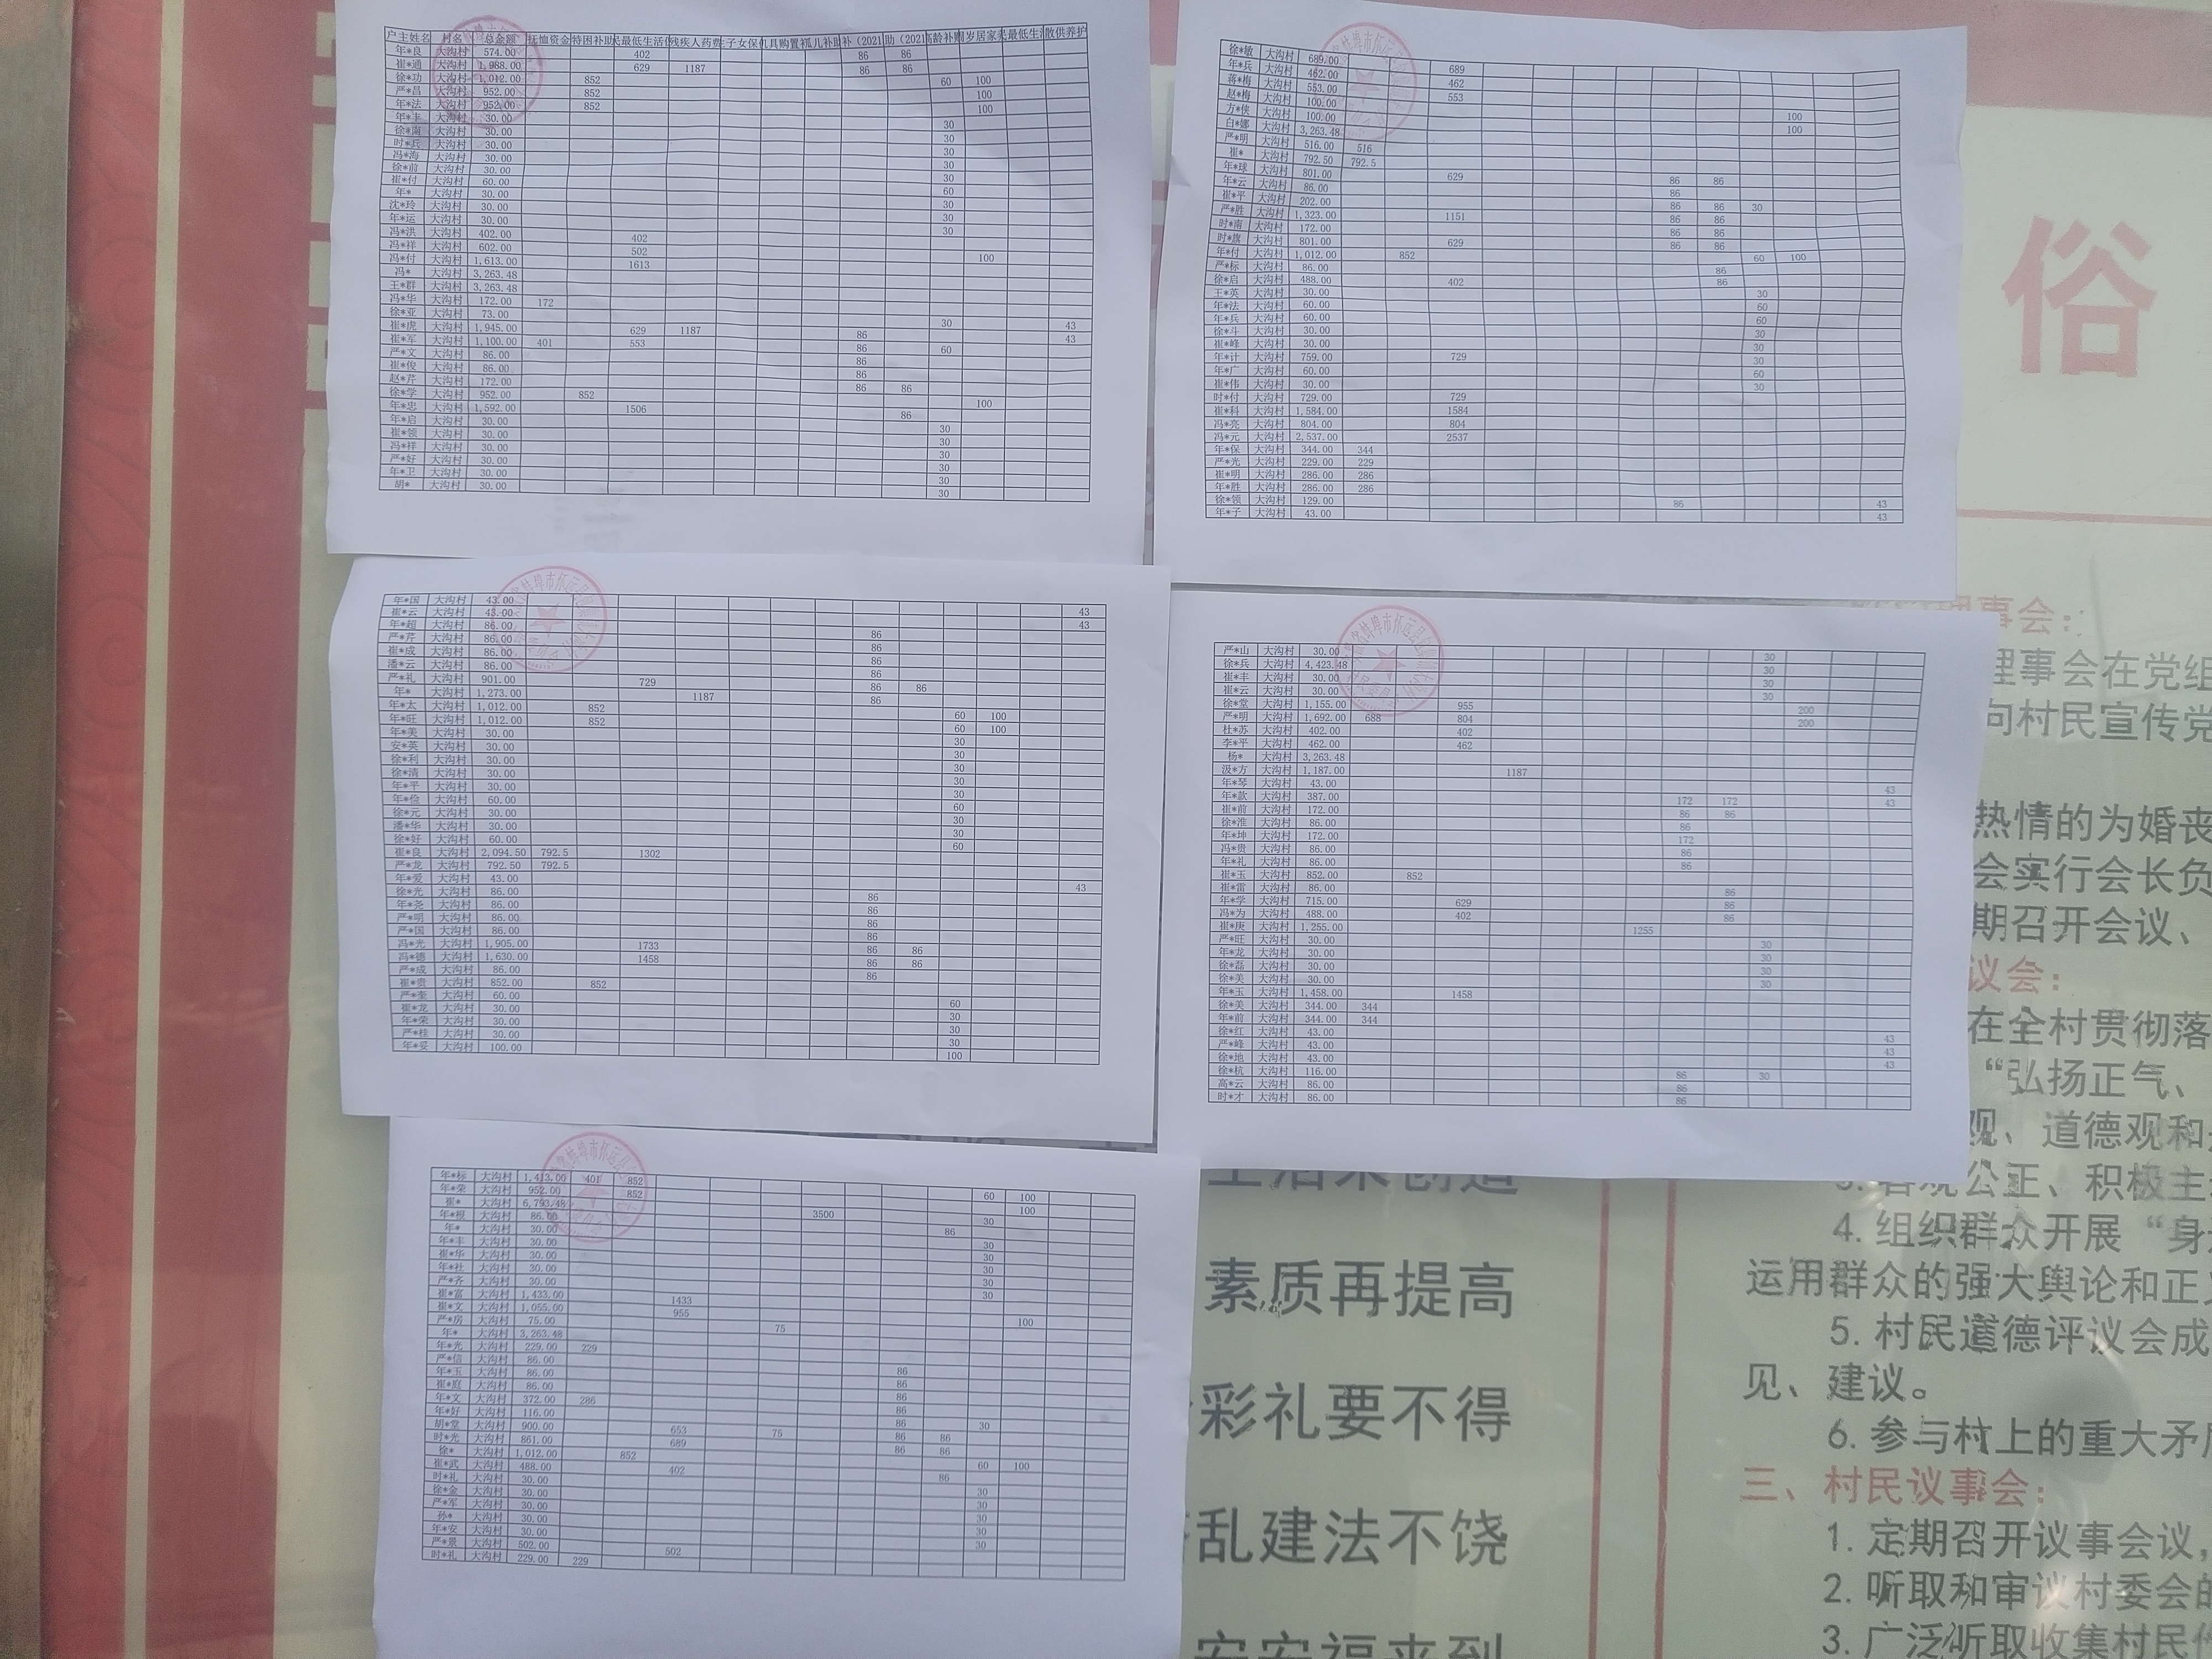 户主姓名 村名 总金额 抚恤资金 特困补助 最低生活 残疾人药费 子女保 具购置 孤儿补助 补（2021 助（2021 高龄补贴 岁居家 最低生活 散供养护
年*良 大沟村 574.00 402 86 86
崔*通 大沟村 1,988.00 629 1187 86 86
徐*功 大沟村 1,012.00 852 60 100
严*昌 大沟村 952.00 852 100
年*法 大沟村 952.00 852 100
年*丰 大沟村 30.00 30
徐*南 大沟村 30.00 30
时*兵 大沟村 30.00 30
冯*海 大沟村 30.00 30
徐*前 大沟村 30.00 30
崔*付 大沟村 60.00 60
年* 大沟村 30.00 30
沈*玲 大沟村 30.00 30
年*运 大沟村 30.00 30
冯*洪 大沟村 402.00 402
冯*祥 大沟村 602.00 502 100
冯*付 大沟村 1,613.00 1613
冯* 大沟村 3,263.48
王*群 大沟村 3,263.48
冯*华 大沟村 172.00 172
徐*亚 大沟村 73.00 30 43
崔*虎 大沟村 1,945.00 629 1187 86 43
崔*军 大沟村 1,100.00 401 553 86 60
严*文 大沟村 86.00 86
崔*俊 大沟村 86.00 86
赵*芹 大沟村 172.00 86 86
徐*学 大沟村 952.00 852 100
年*忠 大沟村 1,592.00 1506 86
年*启 大沟村 30.00 30
崔*领 大沟村 30.00 30
冯*祥 大沟村 30.00 30
严*好 大沟村 30.00 30
年*卫 大沟村 30.00 30
胡* 大沟村 30.00 30
徐*敏 大沟村 689.00 689
年*兵 大沟村 462.00 462
蒋*梅 大沟村 553.00 553
赵*梅 大沟村 100.00 100
方*侠 大沟村 100.00 100
白*娜 大沟村 3,263.48
严*明 大沟村 516.00 516
崔* 大沟村 792.50 792.5
年*球 大沟村 801.00 629 86 86
年*云 大沟村 86.00 86
崔*平 大沟村 202.00 86 86 30
严*胜 大沟村 1,323.00 1151 86 86
时*南 大沟村 172.00 86 86
时*旗 大沟村 801.00 629 86 86
年*付 大沟村 1,012.00 852 60 100
严*标 大沟村 86.00 86
徐*启 大沟村 488.00 402 86
王*英 大沟村 30.00 30
年*法 大沟村 60.00 60
年*兵 大沟村 60.00 60
徐*斗 大沟村 30.00 30
崔*峰 大沟村 30.00 30
年*计 大沟村 759.00 729 30
年*广 大沟村 60.00 60
崔*伟 大沟村 30.00 30
时*付 大沟村 729.00 729
崔*科 大沟村 1,584.00 1584
冯*亮 大沟村 804.00 804
冯*元 大沟村 2,537.00 2537
年*保 大沟村 344.00 344
严*光 大沟村 229.00 229
崔*明 大沟村 286.00 286
年*胜 大沟村 286.00 286
徐*领 大沟村 129.00 86 43
年*子 大沟村 43.00 43
年*国 大沟村 43.00 43
崔*云 大沟村 43.00 43
年*超 大沟村 86.00 86
严*芹 大沟村 86.00 86
崔*成 大沟村 86.00 86
潘*云 大沟村 86.00 86
严*礼 大沟村 901.00 729 86 86
年* 大沟村 1,273.00 1187 86
年*太 大沟村 1,012.00 852 60 100
年*旺 大沟村 1,012.00 852 60 100
年*美 大沟村 30.00 30
安*英 大沟村 30.00 30
徐*利 大沟村 30.00 30
徐*清 大沟村 30.00 30
年*平 大沟村 30.00 30
年*俭 大沟村 60.00 60
徐*元 大沟村 30.00 30
潘*华 大沟村 30.00 30
徐*好 大沟村 60.00 60
崔*良 大沟村 2,094.50 792.5 1302
严*龙 大沟村 792.50 792.5
年*爱 大沟村 43.00 43
徐*光 大沟村 86.00 86
年*尧 大沟村 86.00 86
严*明 大沟村 86.00 86
严*国 大沟村 86.00 86
冯*光 大沟村 1,905.00 1733 86 86
冯*德 大沟村 1,630.00 1458 86 86
严*成 大沟村 86.00 86
崔*贵 大沟村 852.00 852
严*奎 大沟村 60.00 60
崔*龙 大沟村 30.00 30
年*荣 大沟村 30.00 30
严*桂 大沟村 30.00 30
年*妥 大沟村 100.00 100
严*山 大沟村 30.00 30
徐*兵 大沟村 4,423.48 30
崔*丰 大沟村 30.00 30
崔*云 大沟村 30.00 30
徐*堂 大沟村 1,155.00 955 200
严*明 大沟村 1,692.00 688 804 200
杜*苏 大沟村 402.00 402
李*平 大沟村 462.00 462
杨* 大沟村 3,263.48
汲*方 大沟村 1,187.00 1187
年*琴 大沟村 43.00 43
年*款 大沟村 387.00 172 172 43
崔*前 大沟村 172.00 86 86
徐*淮 大沟村 86.00 86
年*坤 大沟村 172.00 172
冯*贵 大沟村 86.00 86
年*礼 大沟村 86.00 86
崔*玉 大沟村 852.00 852
崔*雷 大沟村 86.00 86
年*学 大沟村 715.00 629 86
冯*为 大沟村 488.00 402 86
崔*庚 大沟村 1,255.00 1255
严*旺 大沟村 30.00 30
年*龙 大沟村 30.00 30
徐*磊 大沟村 30.00 30
徐*美 大沟村 30.00 30
年*玉 大沟村 1,458.00 1458
徐*美 大沟村 344.00 344
年*前 大沟村 344.00 344
徐*红 大沟村 43.00 43
严*峰 大沟村 43.00 43
徐*地 大沟村 43.00 43
徐*杭 大沟村 116.00 86 30
高*云 大沟村 86.00 86
时*才 大沟村 86.00 86
年*标 大沟村 1,413.00 401 852 60 100
年*荣 大沟村 952.00 852 100
崔* 大沟村 6,793.48 3500 30
年*根 大沟村 86.00 86
年* 大沟村 30.00 30
年*丰 大沟村 30.00 30
崔*华 大沟村 30.00 30
年*社 大沟村 30.00 30
严*齐 大沟村 30.00 30
崔*富 大沟村 1,433.00 1433
崔*文 大沟村 1,055.00 955 100
严*房 大沟村 75.00 75
年* 大沟村 3,263.48
年*光 大沟村 229.00 229
严*信 大沟村 86.00 86
年*玉 大沟村 86.00 86
崔*庭 大沟村 86.00 86
年*文 大沟村 372.00 286 86
年*好 大沟村 116.00 86 30
胡*堂 大沟村 900.00 653 75 86 86
时*光 大沟村 861.00 689 86 86
徐* 大沟村 1,012.00 852 60 100
崔*武 大沟村 488.00 402 86
时*礼 大沟村 30.00 30
徐*金 大沟村 30.00 30
严*军 大沟村 30.00 30
孙* 大沟村 30.00 30
年*安 大沟村 30.00 30
严*景 大沟村 502.00 502
时*礼 大沟村 229.00 229
俗
事会：
理事会在党组
向村民宣传党
热情的为婚丧
会实行会长负
期召开会议、
议会：
在全村贯彻落
“弘扬正气、
观、道德观和
客观公正、积极主
4. 组织群众开展“身
运用群众的强大舆论和正
5. 村民道德评议会成
见、建议。
6. 参与村上的重大矛
三、村民议事会：
1. 定期召开议事会议，
2. 听取和审议村委会的
3. 广泛听取收集村民
素质再提高
彩礼要不得
乱建法不饶
安安福来到